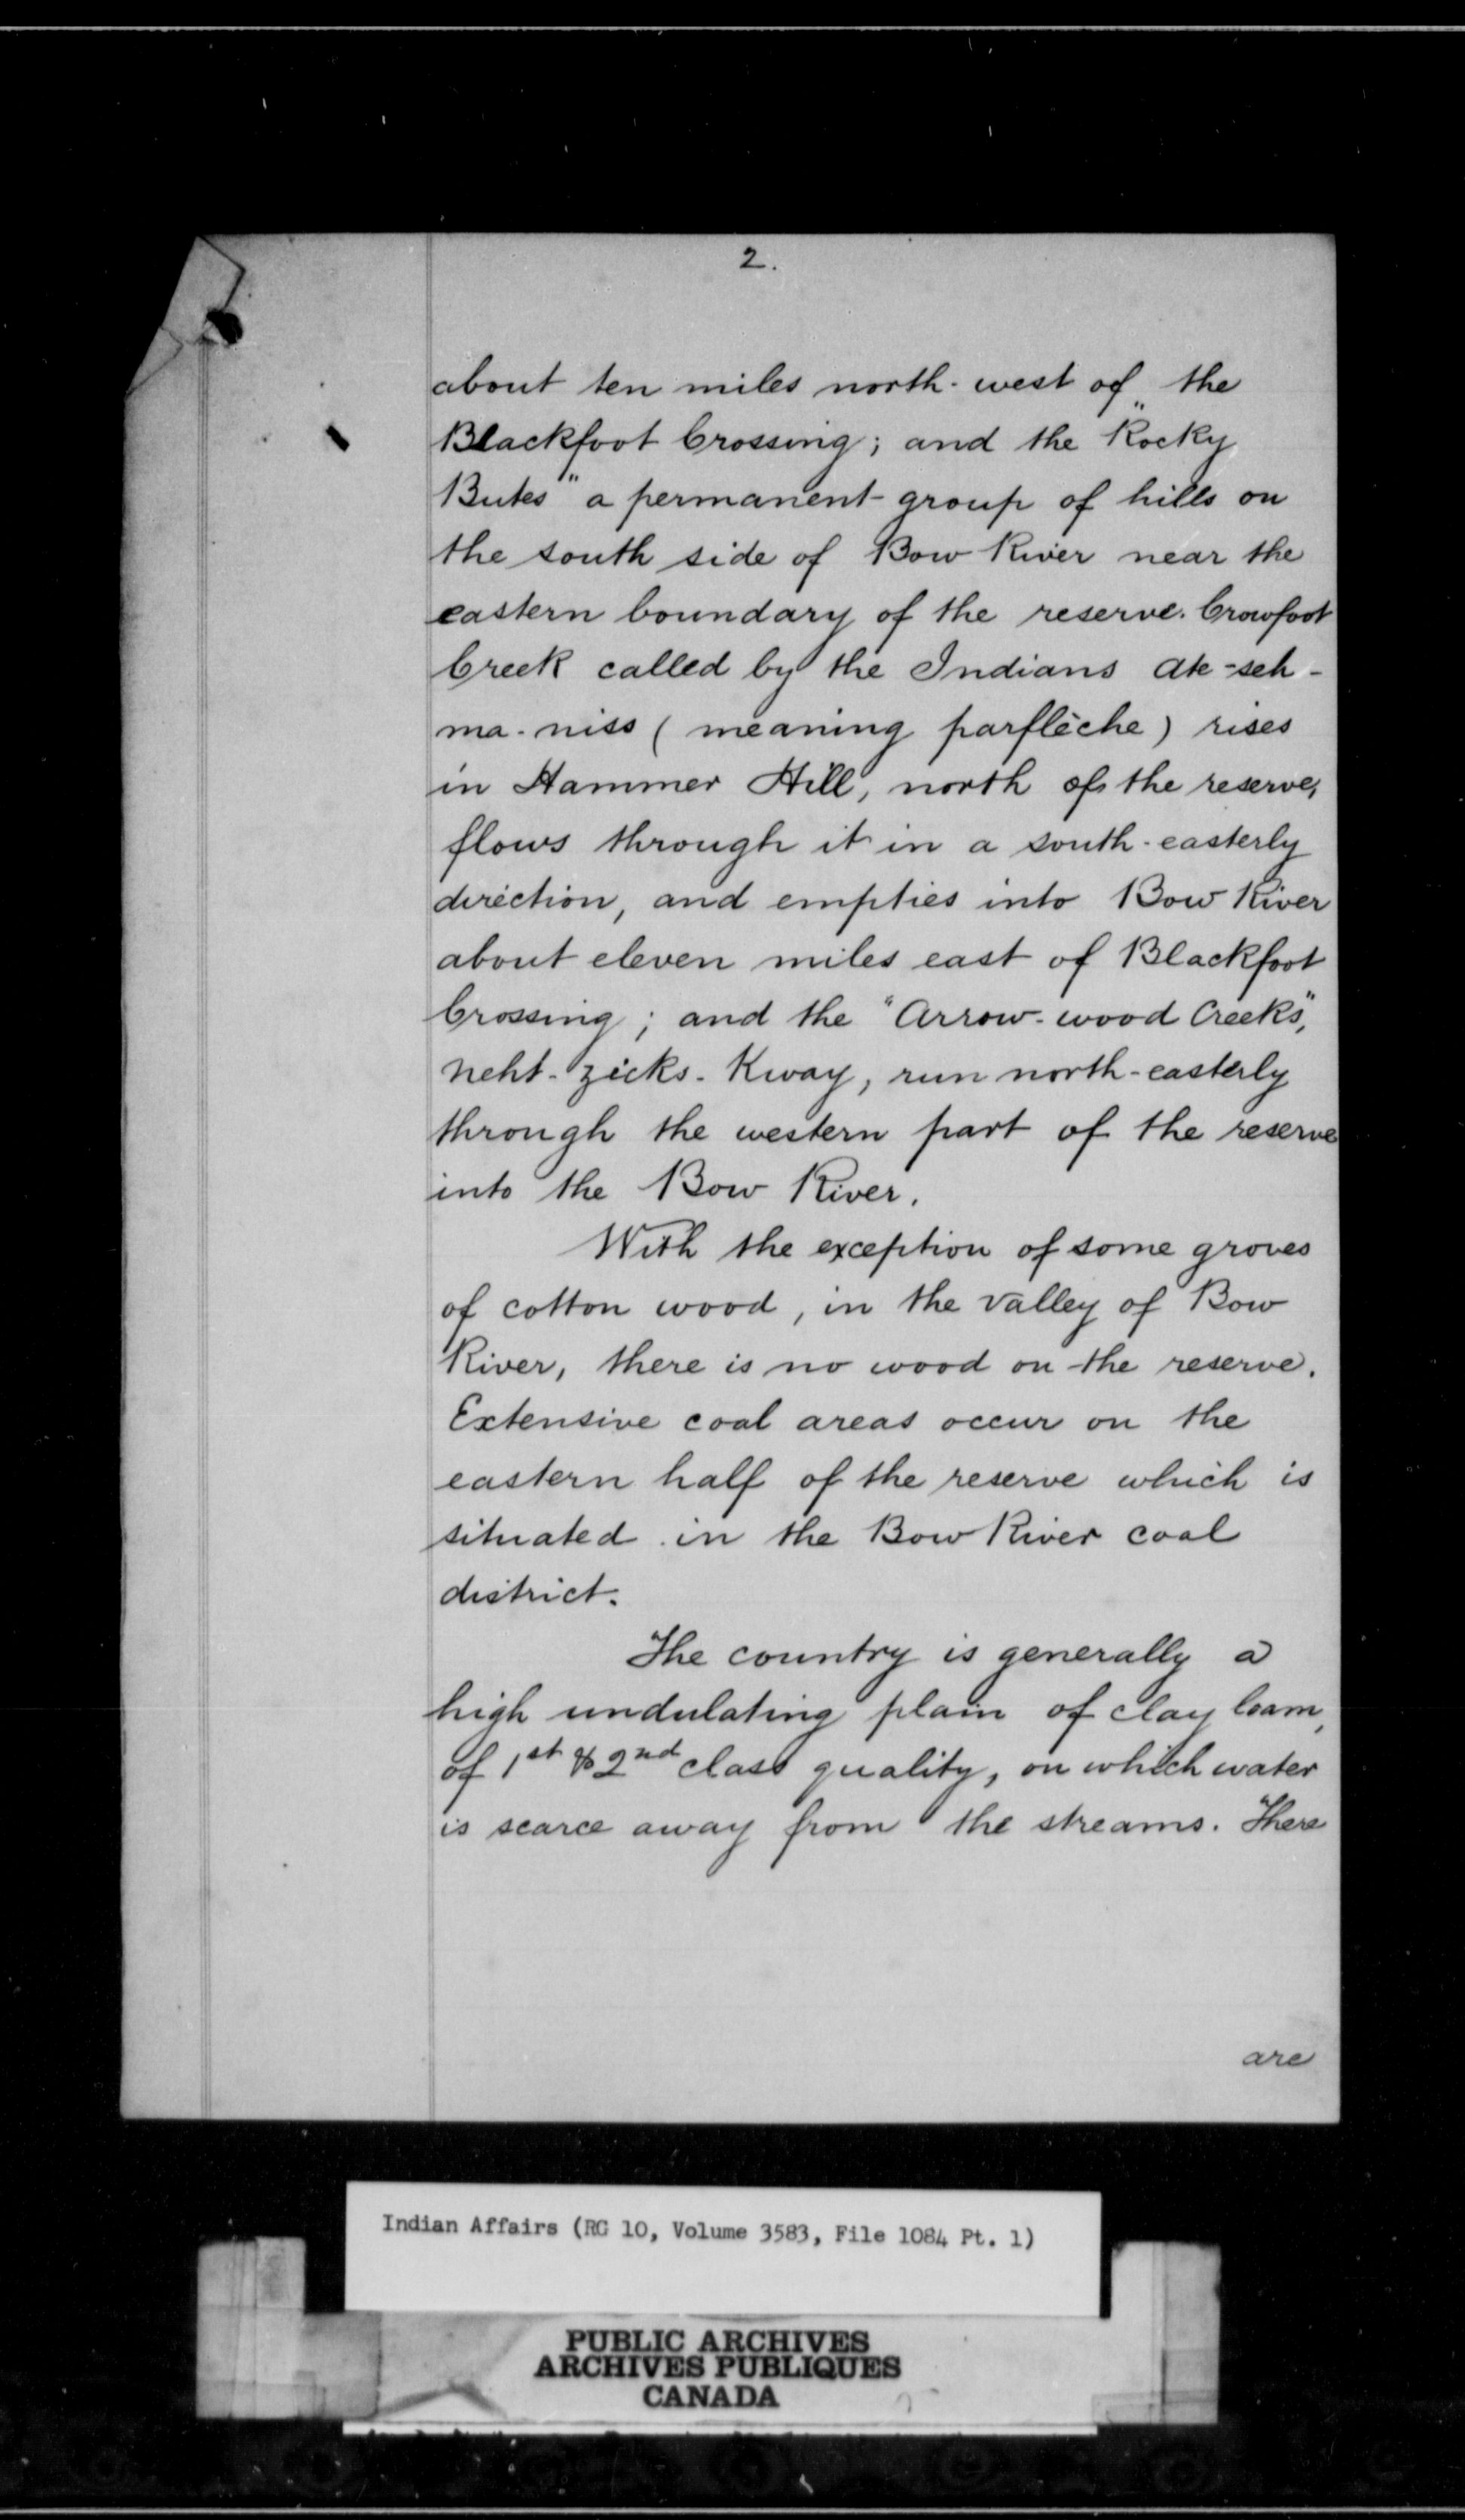 2.
about ten miles north-west of the
Blackfoot Crossing; and the "Rocky
Butes" a permanent group of hills on
the south side of Bow River near the
eastern boundary of the reserve. Crowfoot
Creek called by the Indians ate-seh-
ma-niss (meaning parflèche) rises
in Hammer Hill, north of the reserve,
flows through it in a south-easterly
direction, and empties into Bow River
about eleven miles east of Blackfoot
Crossing; and the "Arrow-wood Creeks",
neht-zicks-Kway, run north-easterly
through the western part of the reserve
into the Bow River.
With the exception of some groves
of cotton wood, in the valley of Bow
River, there is no wood on the reserve.
Extensive coal areas occur on the
eastern half of the reserve which is
situated in the Bow River coal
district.
The country is generally a
high undulating plain of clay loam,
of 1st & 2nd class quality, on which water
is scarce away from the streams. There
are
Indian Affairs (RG 10, Volume 3583, File 1084 Pt. 1)
PUBLIC ARCHIVES
ARCHIVES PUBLIQUES
CANADA